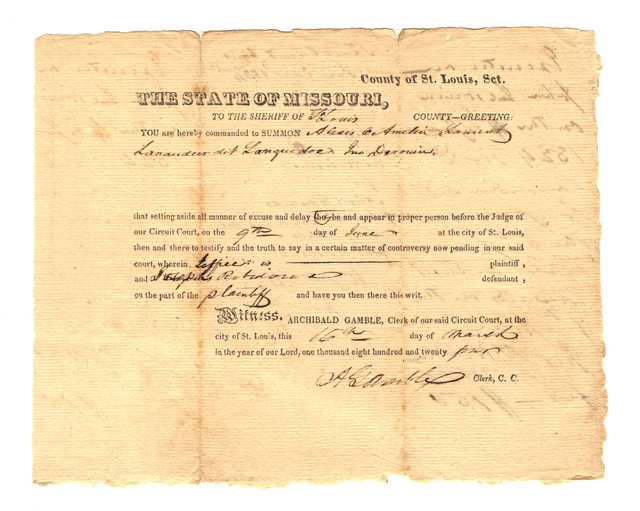 County of St. Louis, Sct.
THE STATE OF MISSOURI,
TO THE SHERIFF OF St Louis COUNTY—GREETING:
YOU are hereby commanded to SUMMON Alexis Amelin Laurent
dit Languedoc Jno
that setting aside all manner of excuse and delay he be and appear in proper person before the Judge of
our Circuit Court, on the 9th day of June at the city of St. Louis,
then and there to testify and the truth to say in a certain matter of controversy now pending in our said
court, wherein plaintiff,
and Joseph defendant,
on the part of the plaintiff and have you then there this writ.
Witness, ARCHIBALD GAMBLE, Clerk of our said Circuit Court, at the
city of St. Louis, this 16th day of March
in the year of our Lord, one thousand eight hundred and twenty four
A Gamble Clerk, C. C.